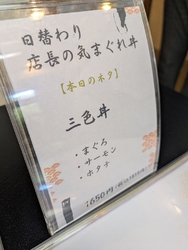 日替わり
店長の気まぐれ丼
【本日のネタ】
三色丼
・まぐろ
・サーモン
・ホタテ